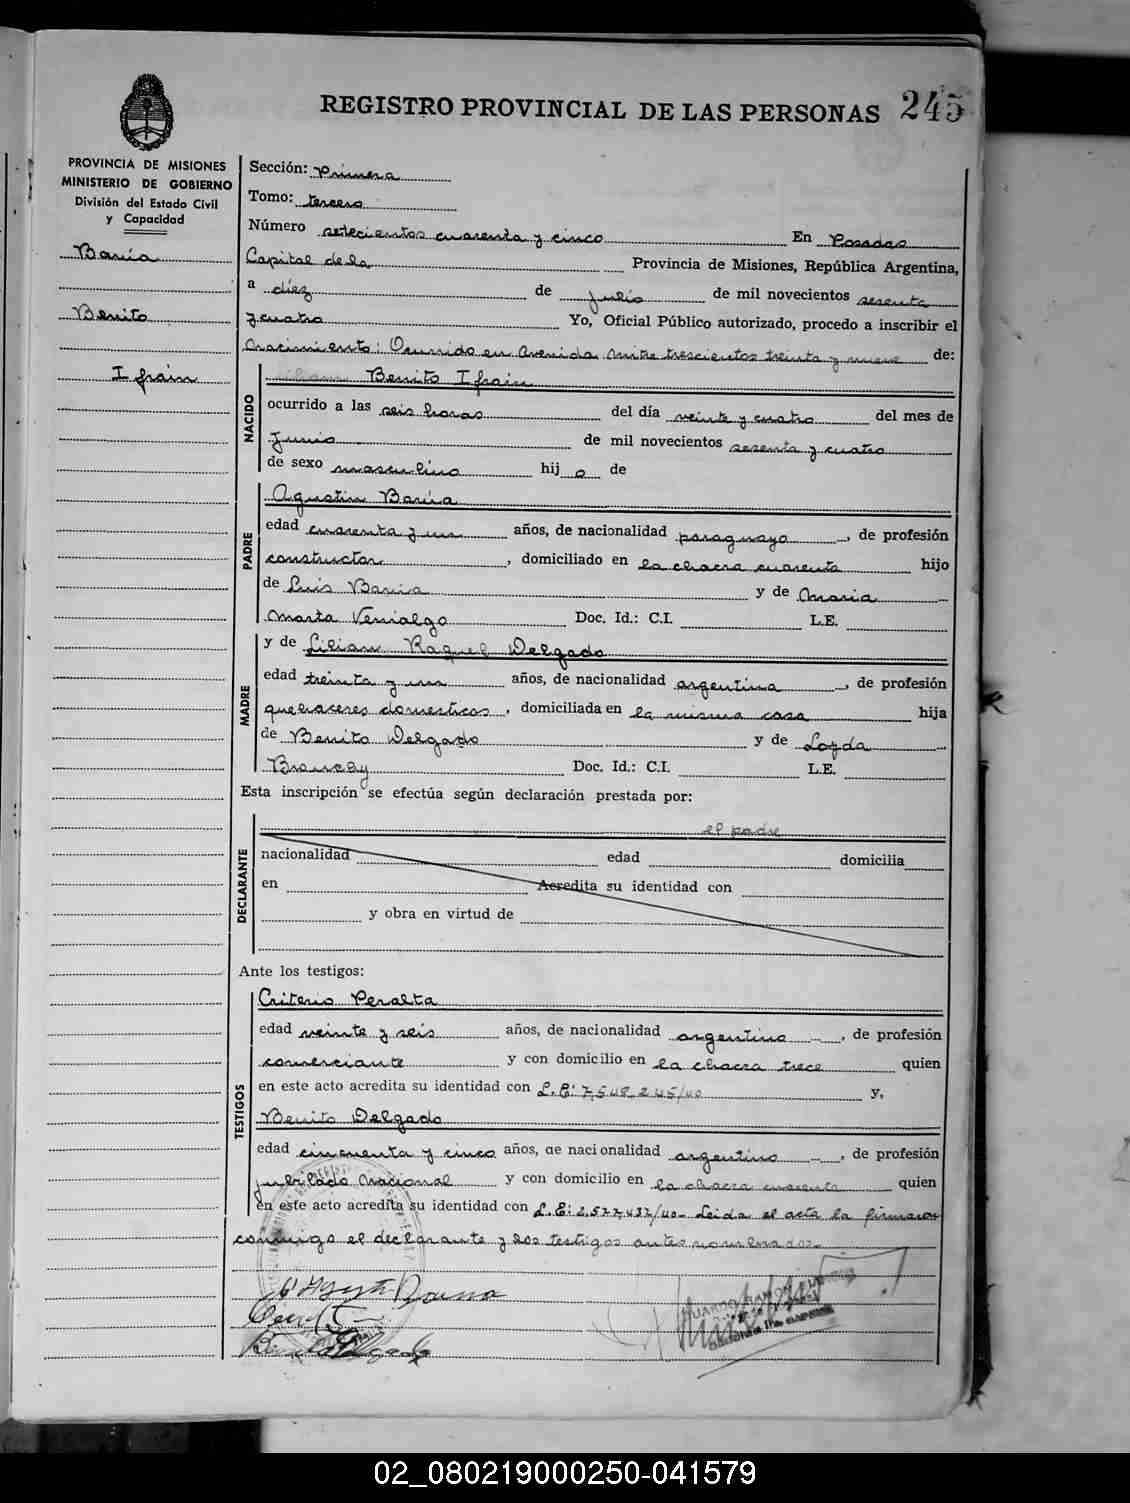 REGISTRO PROVINCIAL DE LAS PERSONAS 245
PROVINCIA DE MISIONES
MINISTERIO DE GOBIERNO
División del Estado Civil
y Capacidad
Baría
Benito
Ifrain
Sección: Primera
Tomo: tercero
Número setecientos cuarenta y cinco En Posadas
Capital de la Provincia de Misiones, República Argentina,
a diez de julio de mil novecientos sesenta
y cuatro Yo, Oficial Público autorizado, procedo a inscribir el
nacimiento: Ocurrido en Avenida Mitre trescientos treinta y nueve de:
NACIDO
Benito Ifrain
ocurrido a las seis horas del día veinte y cuatro del mes de
Junio de mil novecientos sesenta y cuatro
de sexo masculino hij o de
PADRE
Agustin Baría
edad cuarenta y un años, de nacionalidad paraguayo, de profesión
constructor, domiciliado en la chacra cuarenta hijo
de Luis Baría y de Maria
Marta Venialgo Doc. Id.: C.I. L.E.
MADRE
y de Lilian Raquel Delgado
edad treinta y un años, de nacionalidad argentina, de profesión
quehaceres domesticos, domiciliada en la misma casa hija
de Benito Delgado y de
Doc. Id.: C.I. L.E.
Esta inscripción se efectúa según declaración prestada por:
DECLARANTE
el padre
nacionalidad edad domicilia
en Acredita su identidad con
y obra en virtud de
Ante los testigos:
TESTIGOS
Criterio Peralta
edad veinte y seis años, de nacionalidad argentino, de profesión
comerciante y con domicilio en la chacra trece quien
en este acto acredita su identidad con L.E: 7.548.245/40 y,
Benito Delgado
edad cincuenta y cinco años, de nacionalidad argentino, de profesión
jubilado nacional y con domicilio en la chacra cuarenta quien
en este acto acredita su identidad con L.E: 2.577.437/40- Leida el acta la firmaron
conmigo el declarante y los testigos antes nombrados.-
Benito Delgado
02_080219000250-041579